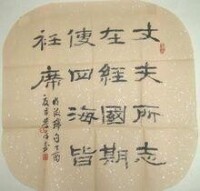 丈夫所志
在經國期
使四海皆
衽席